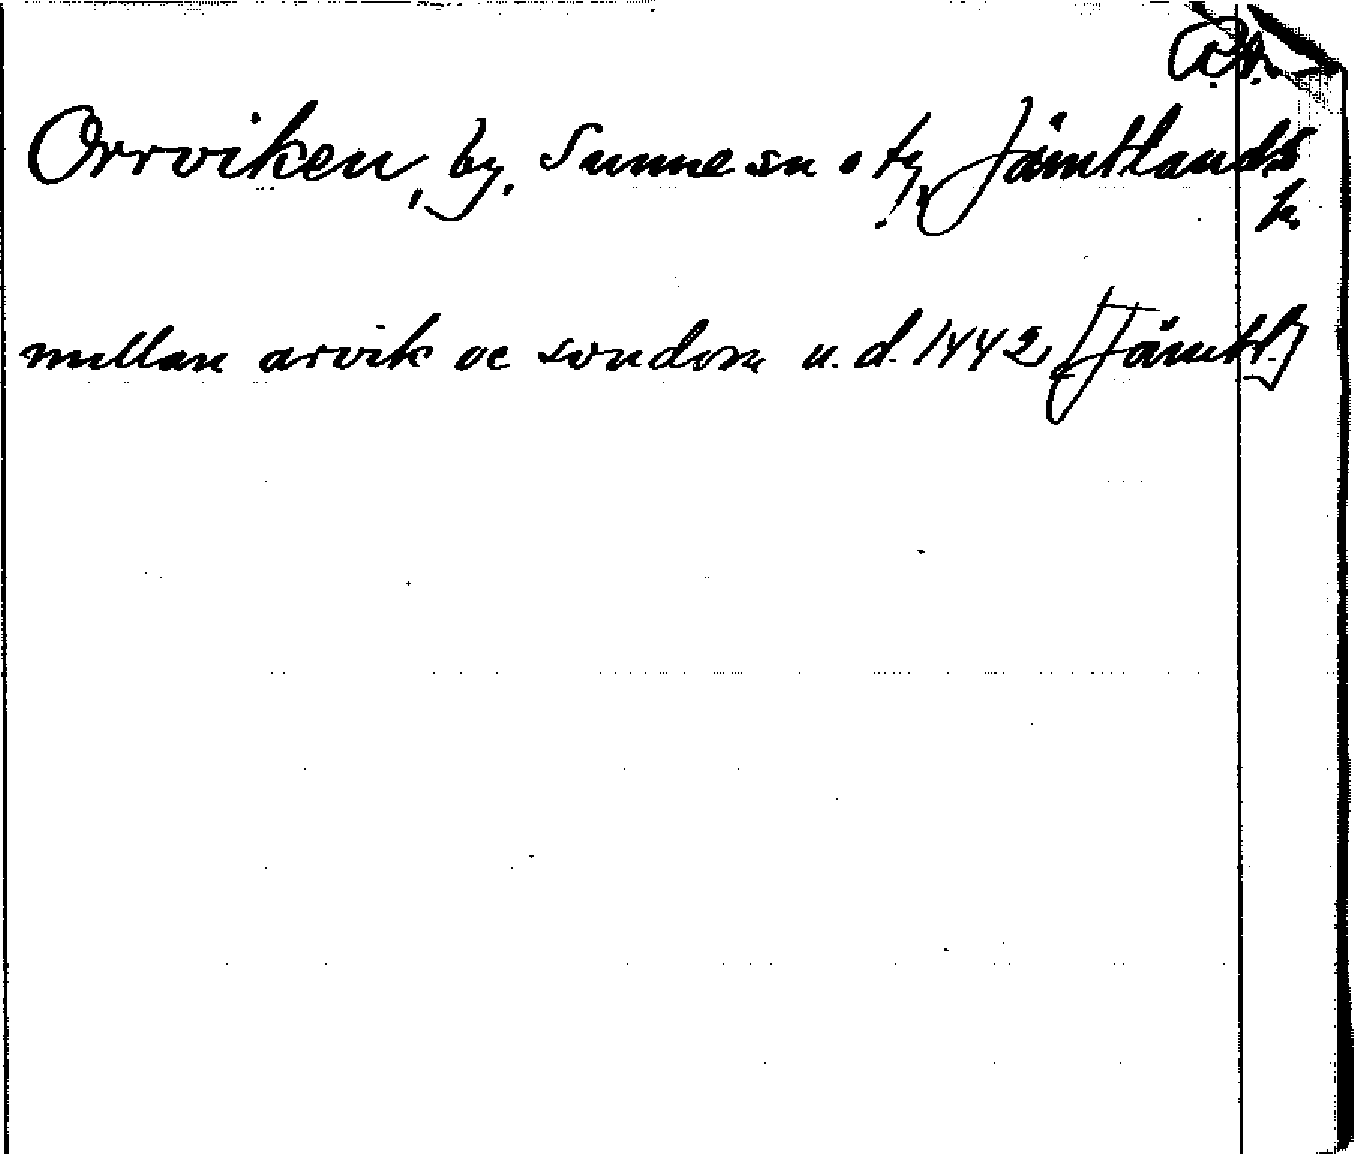 Orrviken, by, Sunne sn o tg, Jämtlands
h.
mellan arvik oc sundom u. d. 1442 [Jämtl.]